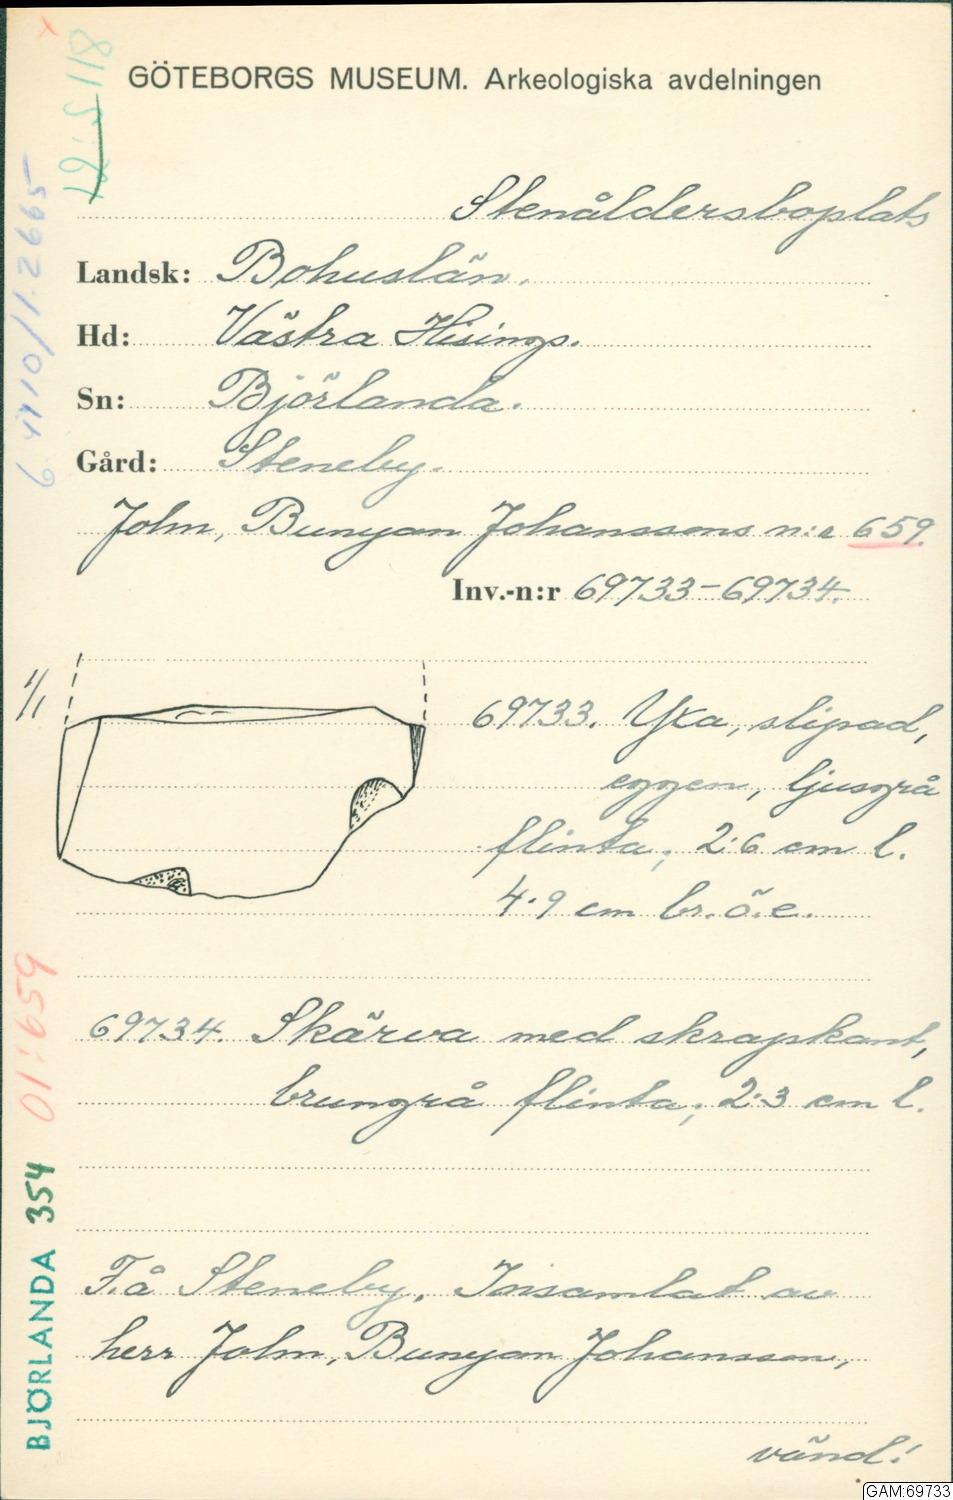 GÖTEBORGS MUSEUM. Arkeologiska avdelningen
Stenåldersboplats
Landsk: Bohuslän.
Hd: Västra Hisings.
Sn: Björlanda.
Gård: Steneby.
John, Bunyan Johanssons n:r 659.
Inv.-n:r 69733-69734.
1/1
69733. Yxa, slipad,
eggen, ljusgrå
flinta; 2.6 cm l.
4.9 cm br. ö. e.
69734. Skärva med skrapkant,
brungrå flinta; 2.3 cm l.
F. å Steneby. Insamlat av
herr John, Bunyan Johansson,
vänd!
x
12:5118
01:659
BJÖRLANDA 354
GAM:69733